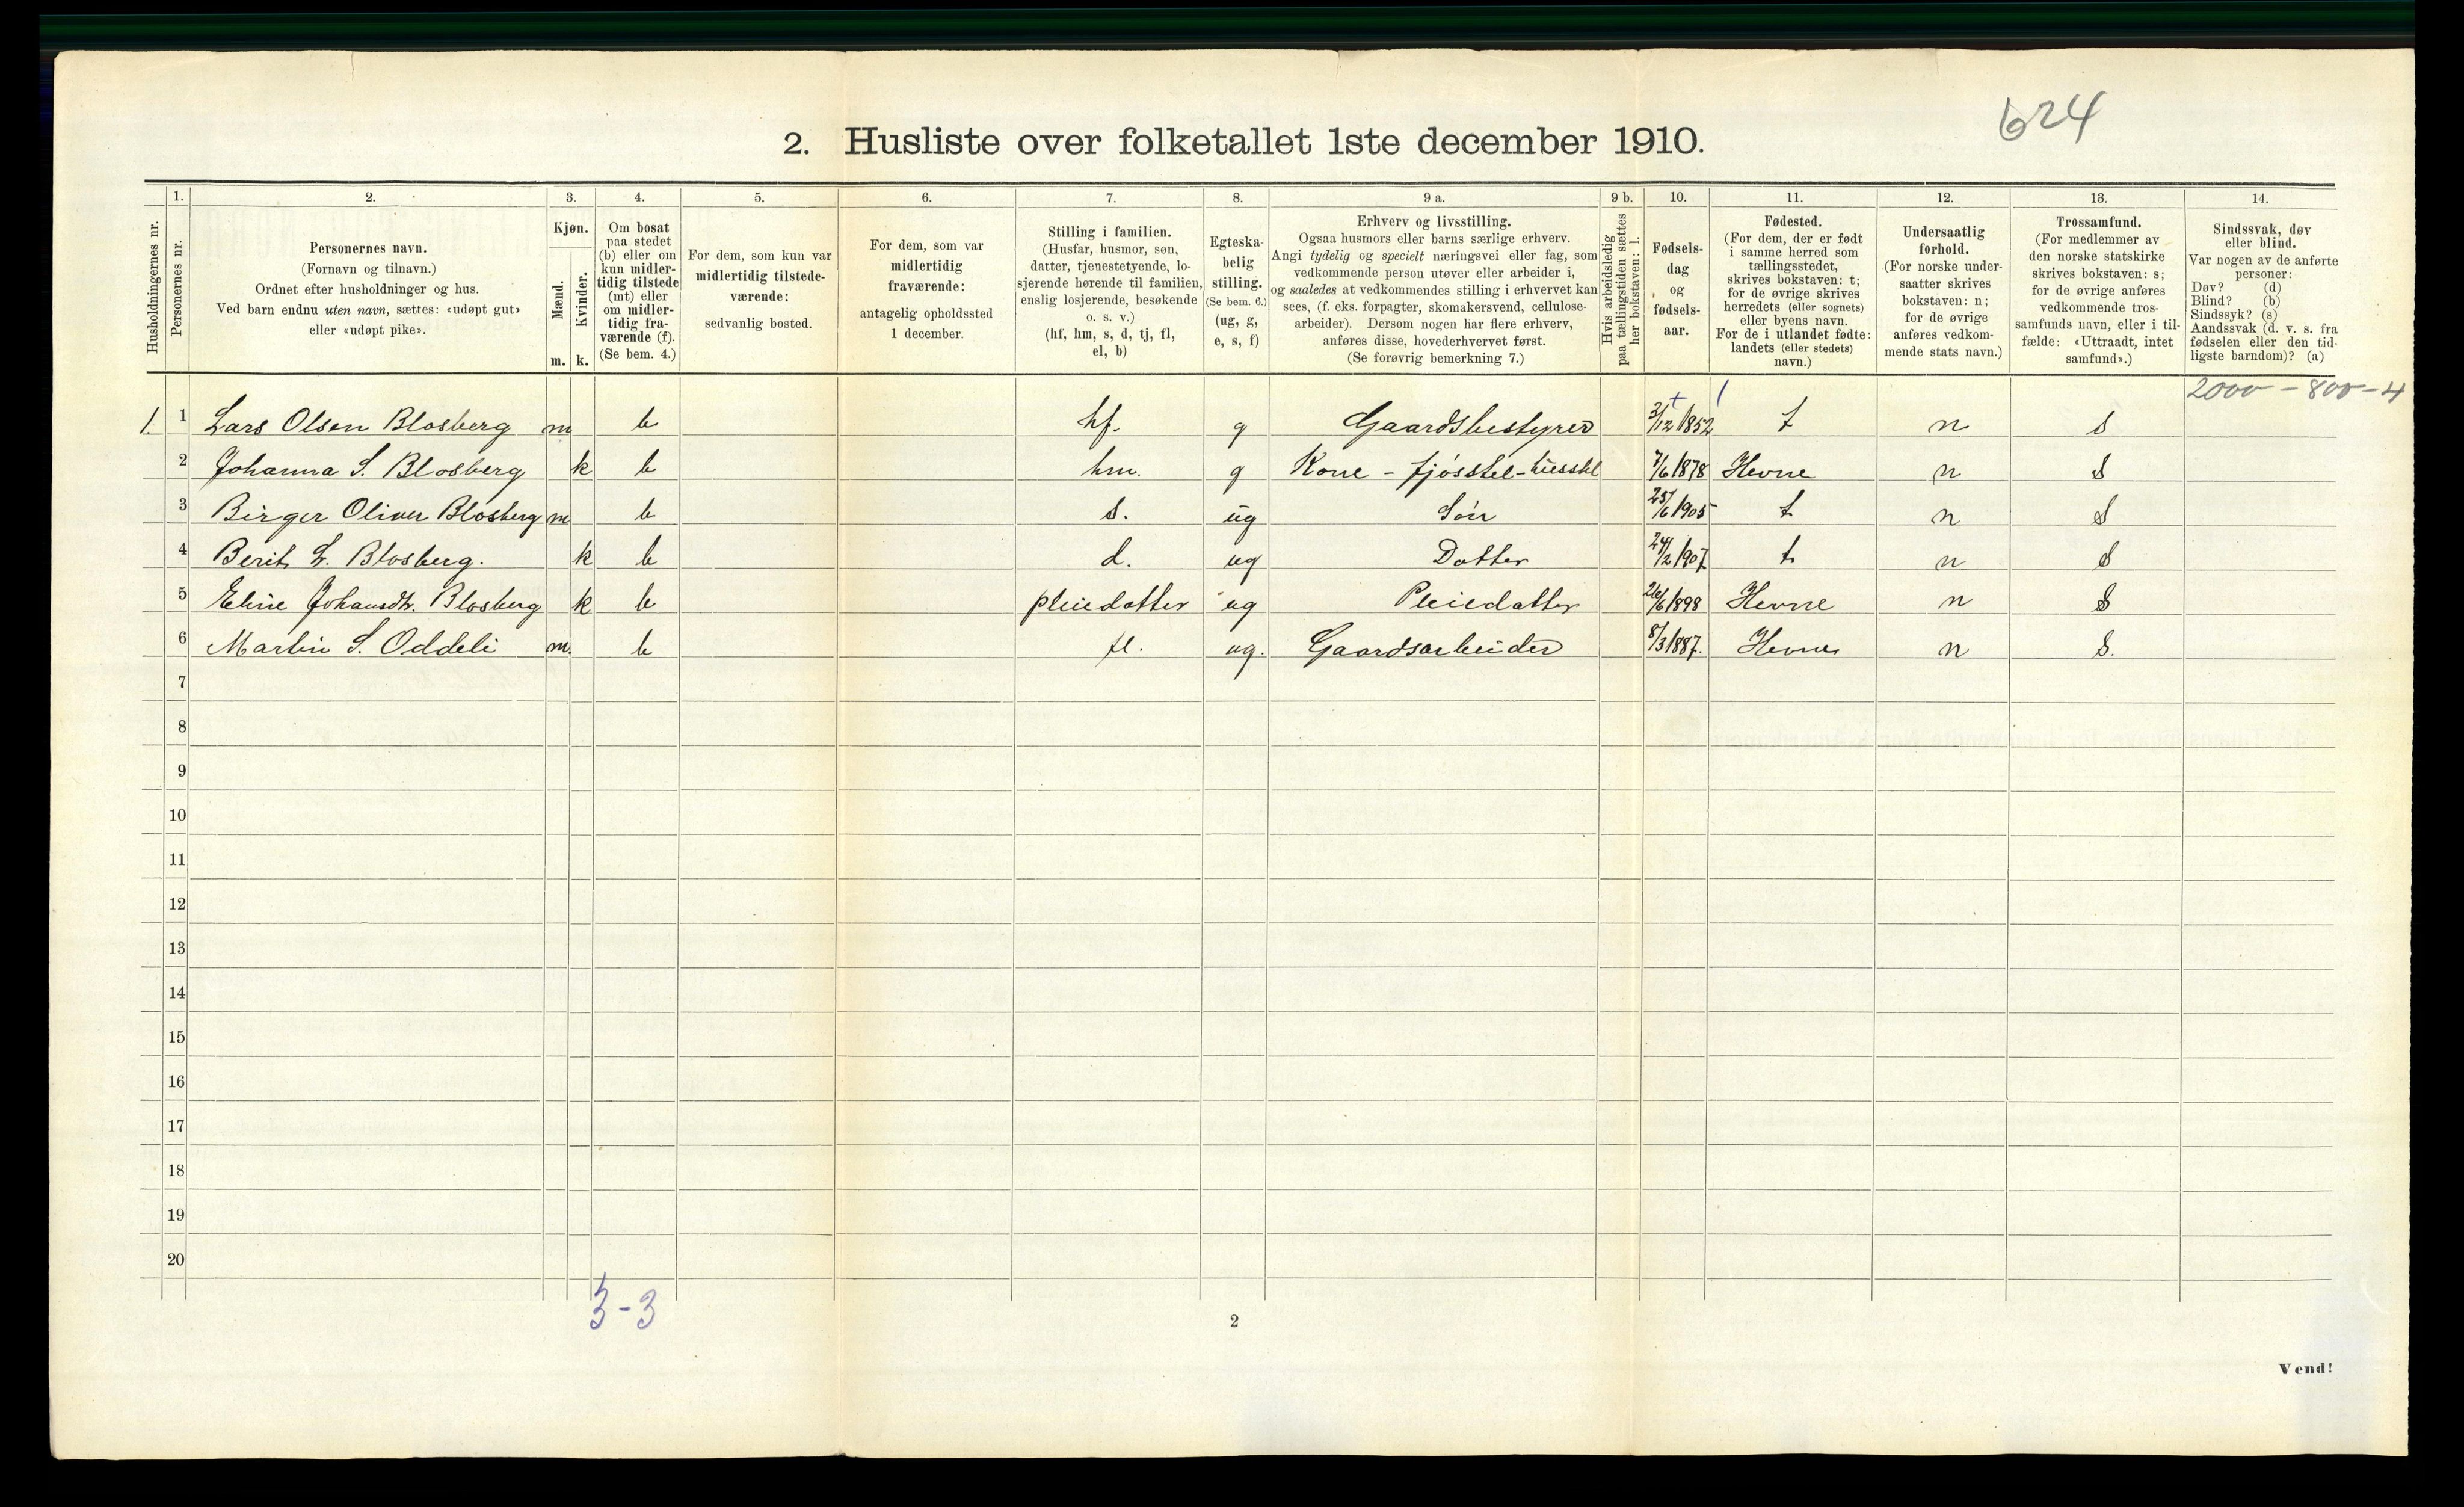 624
2. Husliste over folketallet 1ste december 1910.
Husholdningernes nr.
1.
Personernes nr.
2.
Personernes navn.
(Fornavn og tilnavn.)
Ordnet efter husholdninger og hus.
Ved barn endnu uten navn, sættes: «udøpt gut»
eller «udøpt pike».
3.
Kjøn.
Mænd.
Kvinder.
m. k.
4.
Om bosat
paa stedet
(b) eller om
kun midler-
tidig tilstede
(mt) eller
om midler-
tidig fra-
værende (f).
(Se bem. 4.)
5.
For dem, som kun var
midlertidig tilstede-
værende:
sedvanlig bosted.
6.
For dem, som var
midlertidig
fraværende:
antagelig opholdssted
1 december.
7.
Stilling i familien.
(Husfar, husmor, søn,
datter, tjenestetyende, lo-
sjerende hørende til familien,
enslig losjerende, besøkende
o. s. v.)
(hf, hm, s, d, tj, fl,
el, b)
8.
Egteska-
belig
stilling.
(Se bem. 6.)
(ug, g,
e, s, f)
9 a.
Erhverv og livsstilling.
Ogsaa husmors eller barns særlige erhverv.
Angi tydelig og specielt næringsvei eller fag, som
vedkommende person utøver eller arbeider i,
og saaledes at vedkommendes stilling i erhvervet kan
sees, (f. eks. forpagter, skomakersvend, cellulose-
arbeider). Dersom nogen har flere erhverv,
anføres disse, hovederhvervet først.
(Se forøvrig bemerkning 7.)
9 b.
Hvis arbeidsledig
paa tællingstiden sættes
her bokstaven: l.
10.
Fødsels-
dag
og
fødsels-
aar.
11.
Fødested.
(For dem, der er født
i samme herred som
tællingsstedet,
skrives bokstaven: t;
for de øvrige skrives
herredets (eller sognets)
eller byens navn.
For de i utlandet fødte:
landets (eller stedets)
navn.)
12.
Undersaatlig
forhold.
(For norske under-
saatter skrives
bokstaven: n;
for de øvrige
anføres vedkom-
mende stats navn.)
13.
Trossamfund.
(For medlemmer av
den norske statskirke
skrives bokstaven: s;
for de øvrige anføres
vedkommende tros-
samfunds navn, eller i til-
fælde: «Uttraadt, intet
samfund».)
14.
Sindssvak, døv
eller blind.
Var nogen av de anførte
personer:
Døv? (d)
Blind? (b)
Sindssyk? (s)
Aandssvak (d. v. s. fra
fødselen eller den tid-
ligste barndom)? (a)
2000 - 800 - 4
1. 1 Lars Olsen Blosberg m b hf. g Gaardsbestyrer 3/12 1852 t n s
2 Johanna S. Blosberg k b hm. g Kone - fjøsstel - husstel 7/6 1878 Hevne n s
3 Birger Oliver Blosberg m b s. ug Søn 25/6 1905 t n s
4 Berit L. Blosberg. k b d. ug Datter 24/2 1907 t n s
5 Eline Johansdtr. Blosberg k b pleiedatter ug Pleiedatter 26/6 1898 Hevne n s
6 Martin S. Oddeli m. b fl. ug. Gaardsarbeider 8/3 1887. Hevne n s.
7
8
9
10
11
12
13
14
15
16
17
18
19
20
3 - 3
2
Vend!